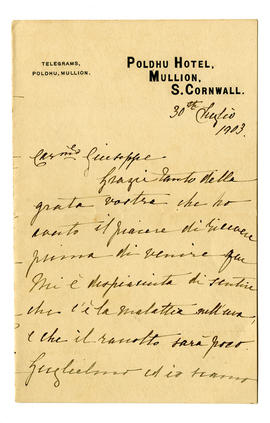 TELEGRAMS,
POLDHU, MULLION.
POLDHU HOTEL,
MULLION,
S. CORNWALL.
30 Luglio
1903.
Giuseppe
Grazie tanto della
grata vostra che ho
avuto il piacere di ricevere
prima di venire qui
Mi è despiaciuta di sentire
che c'è la malattia
e che il racolto sarà poco.
Guglielmo ed io siamo